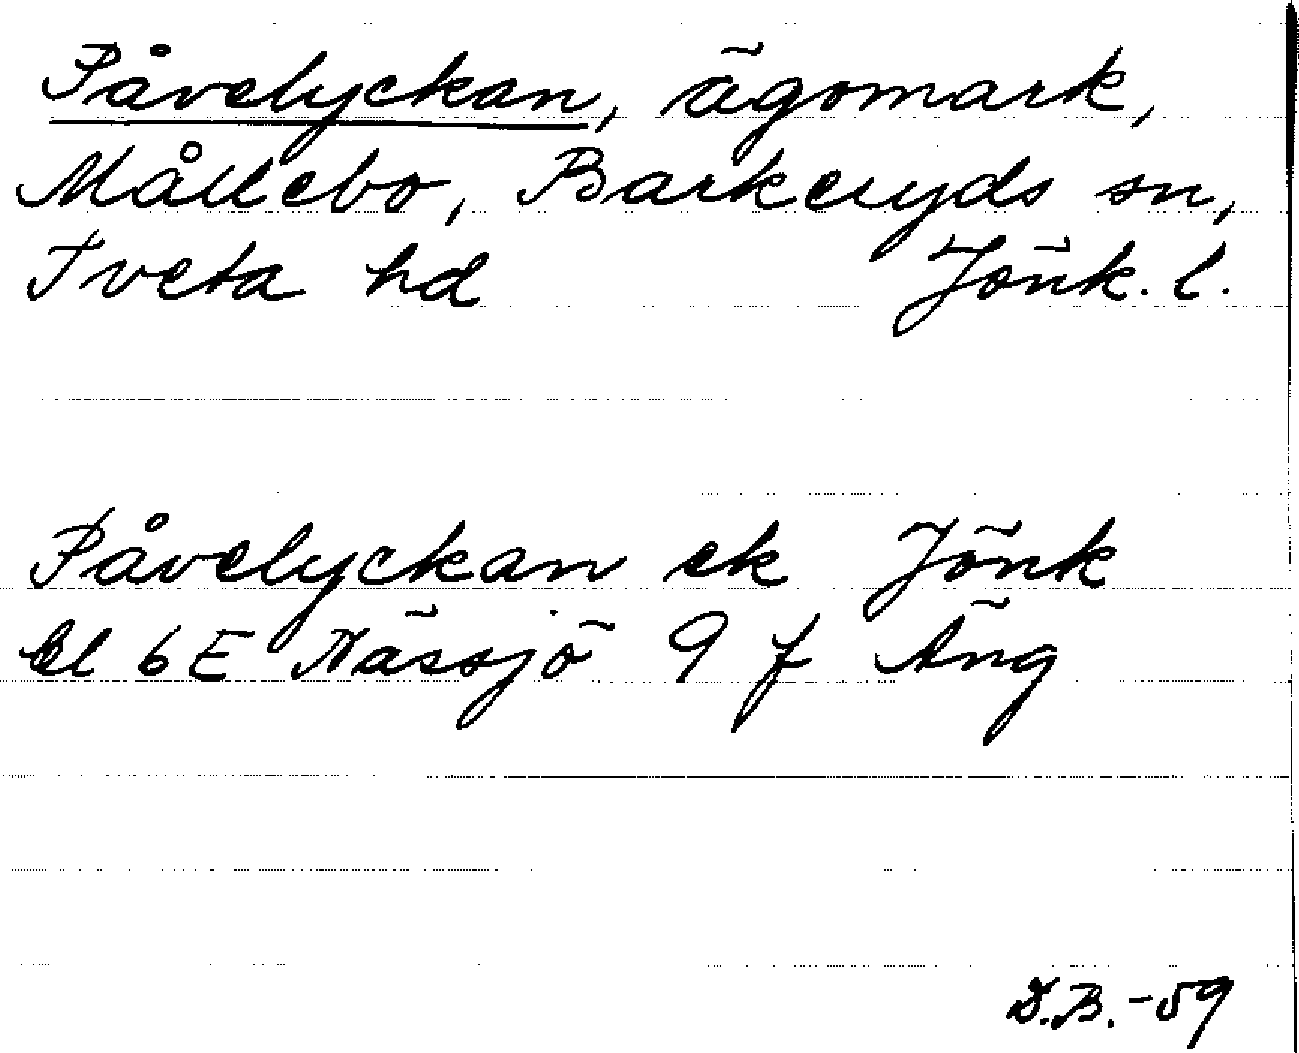 Påvelyckan, ägomark,
Mållebo, Barkeryds sn,
Tveta hd Jönk. l.
Påvelyckan ek Jönk
bl 6E Nässjö 9 f Äng
I.B. -59